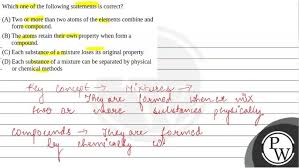 Which one of the following statements is correct?
(A) Two or more than two atoms of the elements combine and
form compound.
(B) The atoms retain their own property when form a
compound.
(C) Each substance of a mixture loses its original property
(D) Each substance of a mixture can be separated by physical
or chemical methods
PW
Key Concept → Mixtures →
They are formed when we mix
two or more substances physically.
Compounds → They are formed
by chemically co